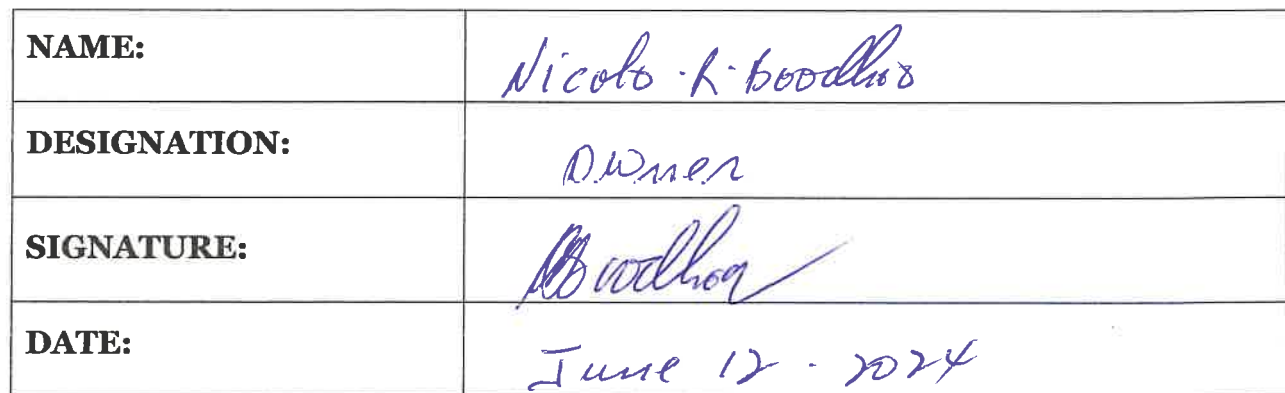 NAME: Nicolo · R · Boodhoo
DESIGNATION: Owner
SIGNATURE: Boodhoo
DATE: June 12 · 2024